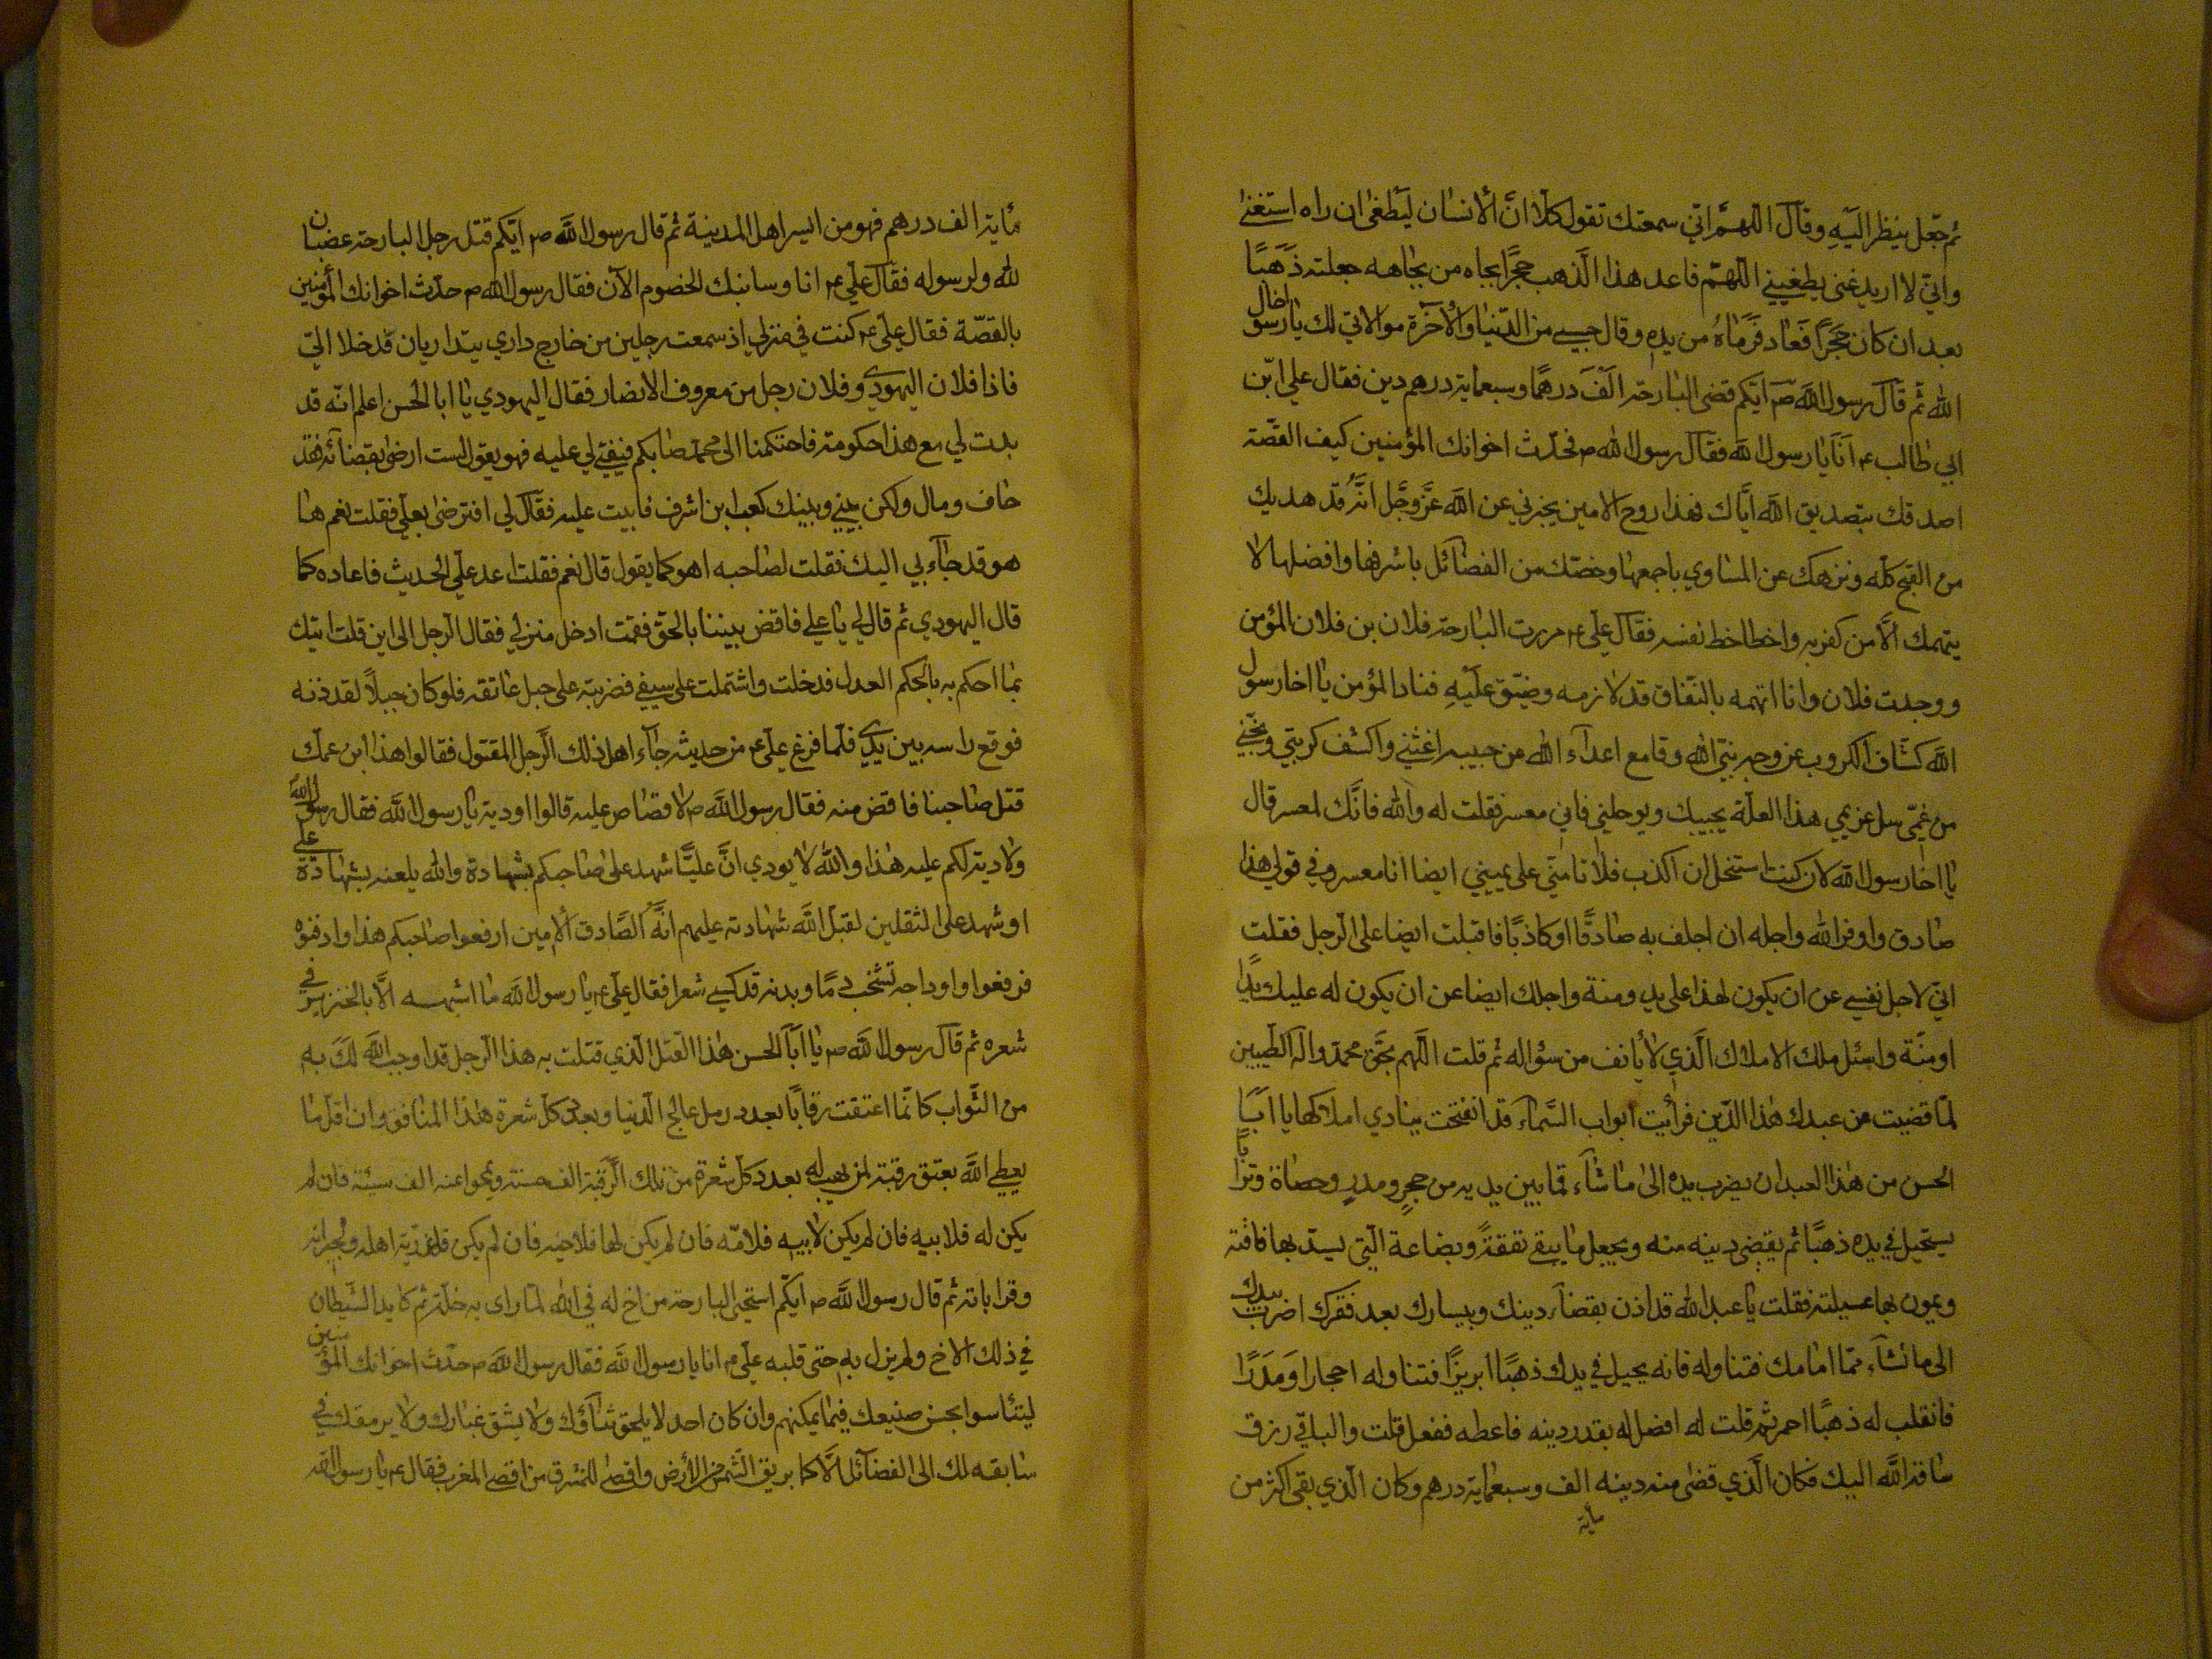 ثم جعل ينظر اليه وقال اللهم اني سمعتك تقول كلا ان الانسان ليطغى ان راه استغنى
واني لا اريد غنى يطغيني اللهم فاعد هذا الذهب حجرا بجاه من بجاهه جعلته ذهبا
بعد ان كان حجرا فعاد فرماه من يده وقال حسبي من الدنيا والآخرة موالاتي لك يا اخا رسول
الله ثم قال رسول الله ص ايكم قضى البارحة الف درهما وسبعماية درهم دين فقال علي ابن
ابي طالب ع انا يا رسول الله فقال رسول الله ص فحدث اخوانك المؤمنين كيف القصة
اصدقك بتصديق الله اياك فهذا روح الامين يخبرني عن الله عز وجل انه قد هديك
من القبح كله ونزهك عن المساوي باجمعها وخصك من الفضائل باشرفها وافضلها لا
يتهمك الا من كفر به واخطا خط نفسه فقال علي ع مررت البارحة فلان بن فلان المؤمن
ووجدت فلان وانا اتهمه بالنفاق قد لازمه وضيق عليه فنادا المؤمن يا اخا رسول
الله كشاف الكروب عن وجه نبي الله وقامع اعداء الله من حبيبه اغثني واكشف كربتي ونجني
من غمي سل غريمي هذا لعله يجيبك ويوجلني فاني معسر فقلت له والله فانك لمعسر قال
يا اخا رسول الله لان كنت استحل ان اكذب فلا تامني على يميني ايضا انا معسر وفي قولي هذا
صادق واوقر الله واجله ان احلف به صادقا او كاذبا فاقبلت ايضا على الرجل فقلت
اني لاجل نفسي عن ان يكون لهذا علي يد ومنة واجلك ايضا عن ان يكون له عليك يدا
او منة واسئل ملك الاملاك الذي لا يانف من سؤاله ثم قلت اللهم بحق محمد واله الطيبين
لما قضيت عن عبدك هذا الدين فرأيت ابواب السماء قد انفتحت ينادي املاكها يا ابا
الحسن مر هذا العبد ان يضرب بيده الى ما شاء مما بين يديه من حجر ومدر وحصاة وترابا
يستحيل في يده ذهبا ثم يقضي دينه منه ويجعل ما يبقى نفقة وبضاعة التي يسد بها فاقته
ويمون بها عيلته فقلت يا عبد الله قد اذن بقضاء دينك وبيسارك بعد فقرك اضرب بيدك
الى ما تشاء مما امامك فتناوله فانه يحيل في يدك ذهبا ابريزا فتناوله احجارا ومدرا
فانقلب له ذهبا احمر ثم قلت له افضل له بقدر دينه فاعطه ففعل قلت والباقي رزق
ساقه الله اليك فكان الذي قضى منه دينه الف وسبعماية درهم وكان الذي بقى اكثر من
ماية
مأية الف درهم فهو من ايسر اهل المدينة ثم قال رسول الله ص ايكم قتل رجل البارحة غضبان
لله ولرسوله فقال علي ع انا وساتيك الخصوم الآن فقال رسول الله ص حدث اخوانك المؤمنين
بالقصة فقال علي ع كنت في منزلي اذ سمعت رجلين من خارج داري يتداريان فدخلا الي
فاذا فلان اليهودي وفلان رجل من معروف الانصار فقال اليهودي يا ابا الحسن اعلم انه قد
بدت لي مع هذا حكومة فاحتكمنا الى محمد صاحبكم فيقضي لي عليه فهو يقول لست ارضى بقضائه فقد
حاف ومال ولكن بيني وبينك كعب ابن اشرف فابيت عليه فقال لي افترضى بعلي فقلت نعم ها
هو قد جاء بي اليك فقلت لصاحبه اهو كما يقول قال نعم فقلت اعد علي الحديث فاعاده كما
قال اليهودي ثم قال لي يا علي فاقض بيننا بالحق فقمت ادخل منزلي فقال الرجل الى اين قلت اتيك
بما احكم به بالحكم العدل فدخلت واشتملت على سيفي فضربته على حبل عاتقه فلو كان جبلا لقددته
فوقع راسه بين يدي فلما فرغ علي ع من حديثه جاء اهل ذلك الرجل المقتول فقالوا هذا ابن عمك
قتل صاحبنا فاقض منه فقال رسول الله ص لا قصاص عليه قالوا او دية يا رسول الله فقال رسول الله
ولا دية لكم عليه هذا والله لا يودي ان عليا شهد على صاحبكم بشهادة والله يلعنه بشهادة علي
او شهد على الثقلين لقبل الله شهادته عليهم انه الصادق الامين ارفعوا صاحبكم هذا وادفنوه
فرفعوا واوداجه تشخب دما وبدنه قد كسي شعرا فقال علي ع يا رسول الله ما اشبهه الا بالخنزير في
شعره ثم قال رسول الله ص يا ابا الحسن هذا القتل الذي قتلت به هذا الرجل قد اوجب الله لك به
من الثواب كانما اعتقت رقابا بعدد رمل عالج الدنيا وبعدد كل شعرة هذا المنافق وان اقل ما
يعطي الله بعتق رقبة لمن يهب له بعدد كل شعرة من تلك الرقبة الف حسنة ويمحوا عنه الف سيئة فان لم
يكن له فلابيه فان لم يكن لابيه فلامه فان لم يكن لها فلاخيه فان لم يكن فلذريته اهله وجيرانه
وقراباته ثم قال رسول الله ص ايكم استحى البارحة من اخ له في الله لما راى به خلة ثم كايد الشيطان
في ذلك الاخ ولم يزل به حتى قلبه علي ع انا يا رسول الله فقال رسول الله ص حدث اخوانك المؤمنين
ليتأسوا بحسن صنيعك فيما يمكنهم وان كان احد لا يلحق ثناؤك ولا يشق غبارك ولا يرمقك في
سابقه لك الى الفضائل الا كما بريق الشمس من الارض واقصى المشرق من اقصى المغرب فقال ع يا رسول الله